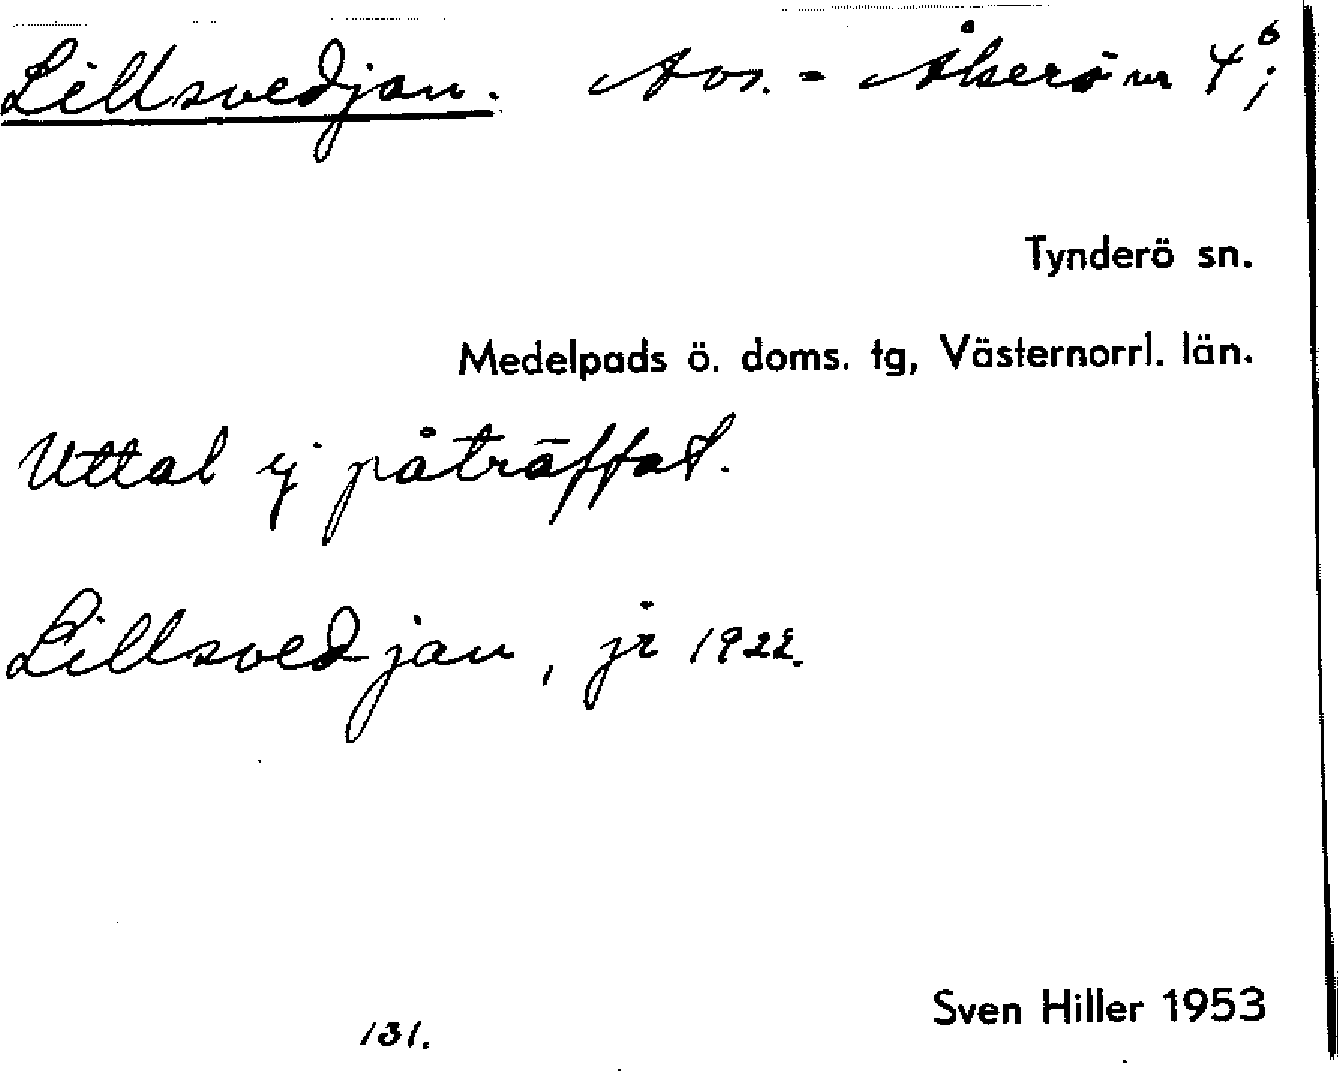 Lillsvedjan. Avs. - Åkerö nr 4⁶;
Tynderö sn.
Medelpads ö. doms. tg, Västernorrl. län.
Uttal ej påträffat.
Lillsvedjan, jr 1922.
131.
Sven Hiller 1953